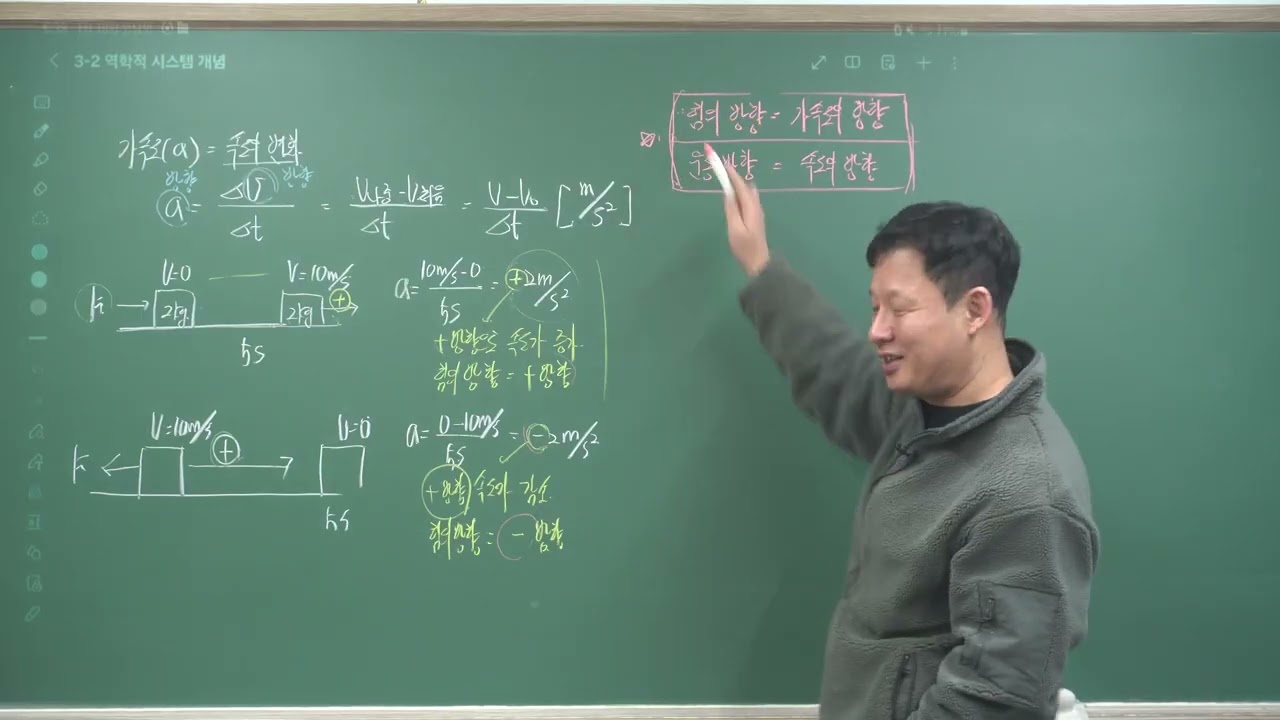 3-2 역학적 시스템 개념
가속도(a) = 속도의 변화
방향 방향
a = ΔV/Δt = V나중-V처음/Δt = V-V₀/Δt [m/s²]
V=0 V=10m/s
F 2kg 2kg +
5s
a = 10m/s-0/5s = +2m/s²
+방향으로 속도가 증가.
힘의 방향 = +방향
V=10m/s V=0
F +
5s
a = 0-10m/s/5s = -2m/s²
+방향 속도가 감소.
힘의방향 = - 방향
힘의 방향 = 가속도의 방향
방향 = 속도의 방향